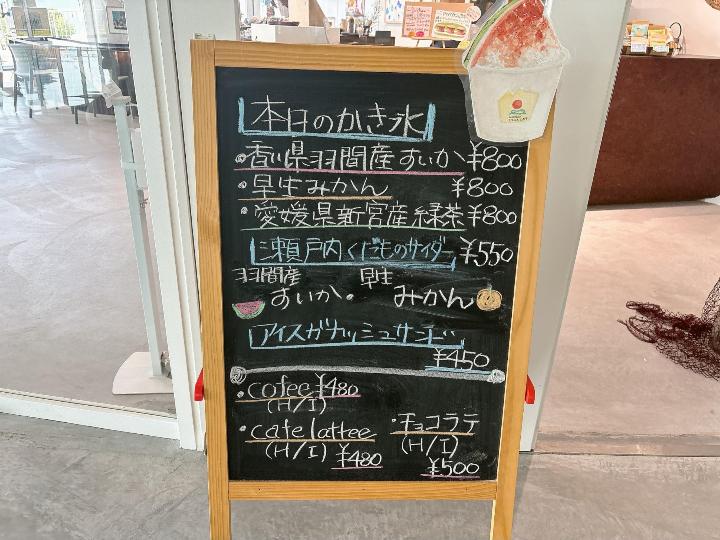 本日のかき氷
・香川県羽間産すいか ¥800
・早生みかん ¥800
・愛媛県新宮産緑茶 ¥800
瀬戸内くだものサイダー ¥550
羽間産 早生
すいか・ みかん
アイスガナッシュサンド
¥450
・cofee ¥480
(H/I)
・cafe lattee ・チョコラテ
(H/I) (H/I)
¥480 ¥500